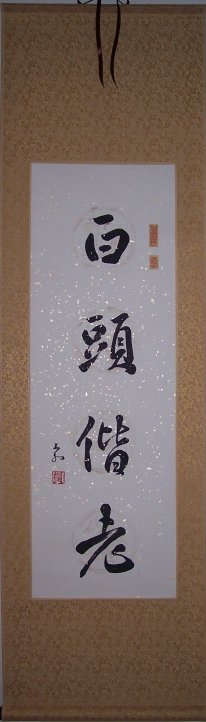 白頭偕老